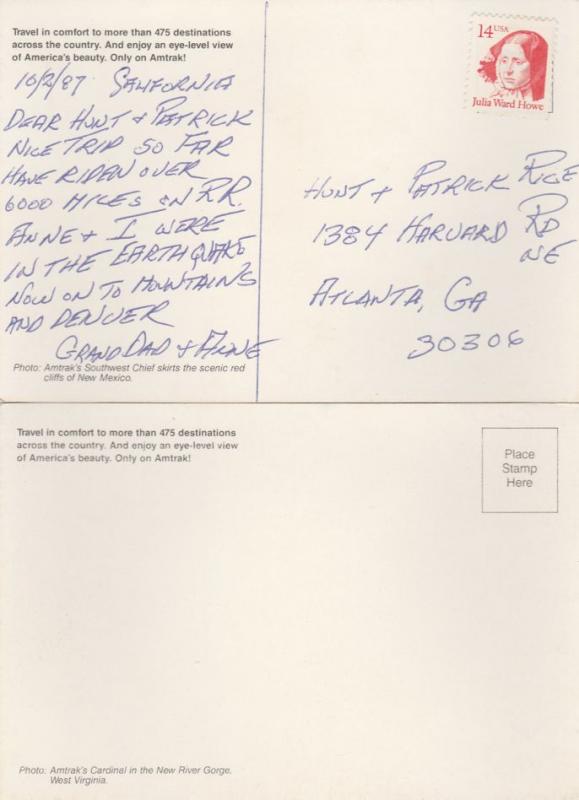 Travel in comfort to more than 475 destinations
across the country. And enjoy an eye-level view
of America's beauty. Only on Amtrak!
10/2/87 SALIFORNIA
DEAR HUNT + PATRICK
NICE TRIP SO FAR
HAVE RIDEN OVER
6000 MILES ON RR.
ANNE + I WERE
IN THE EARTHQUAKE
NOW ON TO MOUNTAINS
AND DENVER
GRAND DAD + ANNE
Photo: Amtrak's Southwest Chief skirts the scenic red
cliffs of New Mexico.
14 USA
Julia Ward Howe
HUNT + PATRICK RICE
1384 HARVARD RD
NE
ATLANTA, GA
30306
Travel in comfort to more than 475 destinations
across the country. And enjoy an eye-level view
of America's beauty. Only on Amtrak!
Place
Stamp
Here
Photo: Amtrak's Cardinal in the New River Gorge,
West Virginia.